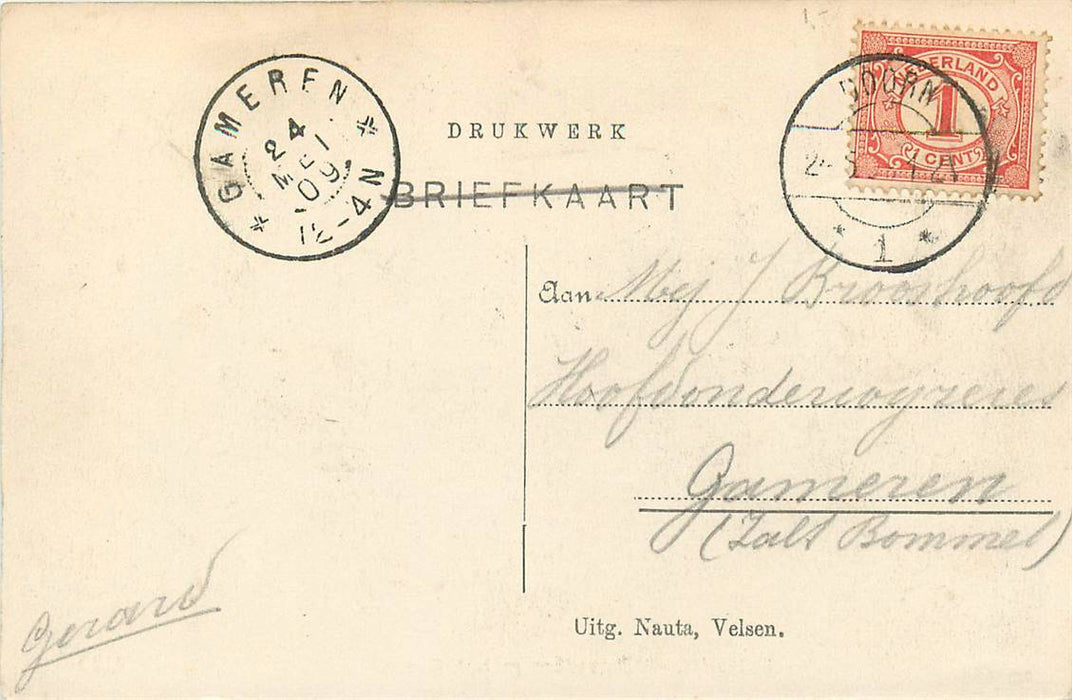 GAMEREN
24
MEI
09
12-4N
DRUKWERK
BRIEFKAART
NEDERLAND
1
1 CENT
DOORN
1
Aan Mej J Brooshooft
Hoofdonderwijzeres
Gameren
(Zalt Bommel)
Gerard
Uitg. Nauta, Velsen.